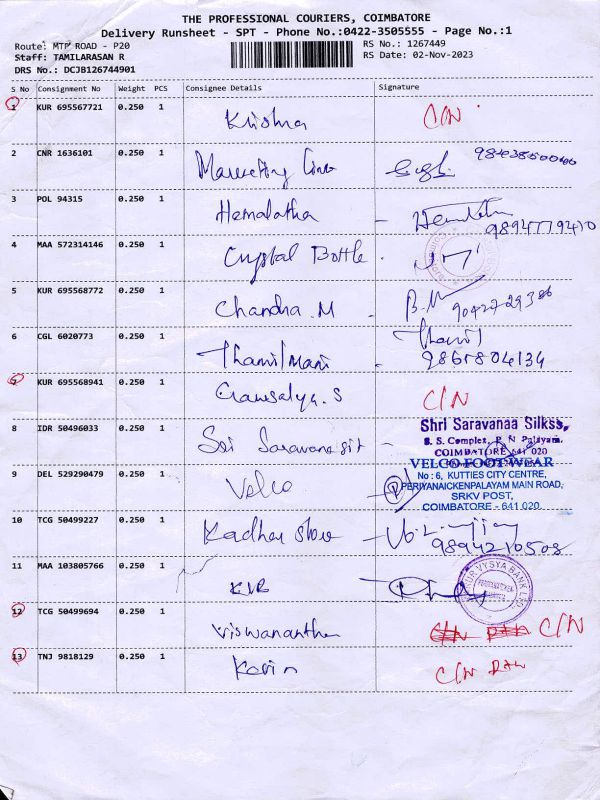 THE PROFESSIONAL COURIERS, COIMBATORE
Delivery Runsheet - SPT - Phone No.:0422-3505555 - Page No.:1
Route: MTP ROAD - P20
RS No.: 1267449
Staff: TAMILARASAN R
RS Date: 02-Nov-2023
DRS No.: DCJB126744901
S No Consignment No Weight PCS Consignee Details Signature
1 KUR 695567721 0.250 1 Krishna C/N
2 CNR 1636101 0.250 1 Marketing
3 POL 94315 0.250 1 Hemalatha - 9894779410
4 MAA 572314146 0.250 1 Crystal Bottle.
5 KUR 695568772 0.250 1 Chandra.M - B.M
6 CGL 6020773 0.250 1 Thamilmani - Thamil
9867804134
7 KUR 695568941 0.250 1 C/N
8 IDR 50496033 0.250 1 Sri -
Shri Saravanaa Silkss,
S. S. Complex, P. N Palayam.
COIMBATORE 641 020
9 DEL 529290479 0.250 1 Velco -
VELCO FOOT WEAR
No : 6, KUTTIES CITY CENTRE,
PERIYANAICKENPALAYAM MAIN ROAD,
SRKV POST,
COIMBATORE - 641 020.
10 TCG 50499227 0.250 1 Kadhar store -
9894210508
11 MAA 103805766 0.250 1 KVB -
KARUR VYSYA BANK LTD
12 TCG 50499694 0.250 1 Viswanathan C/N
13 TNJ 9818129 0.250 1 Kavin C/N